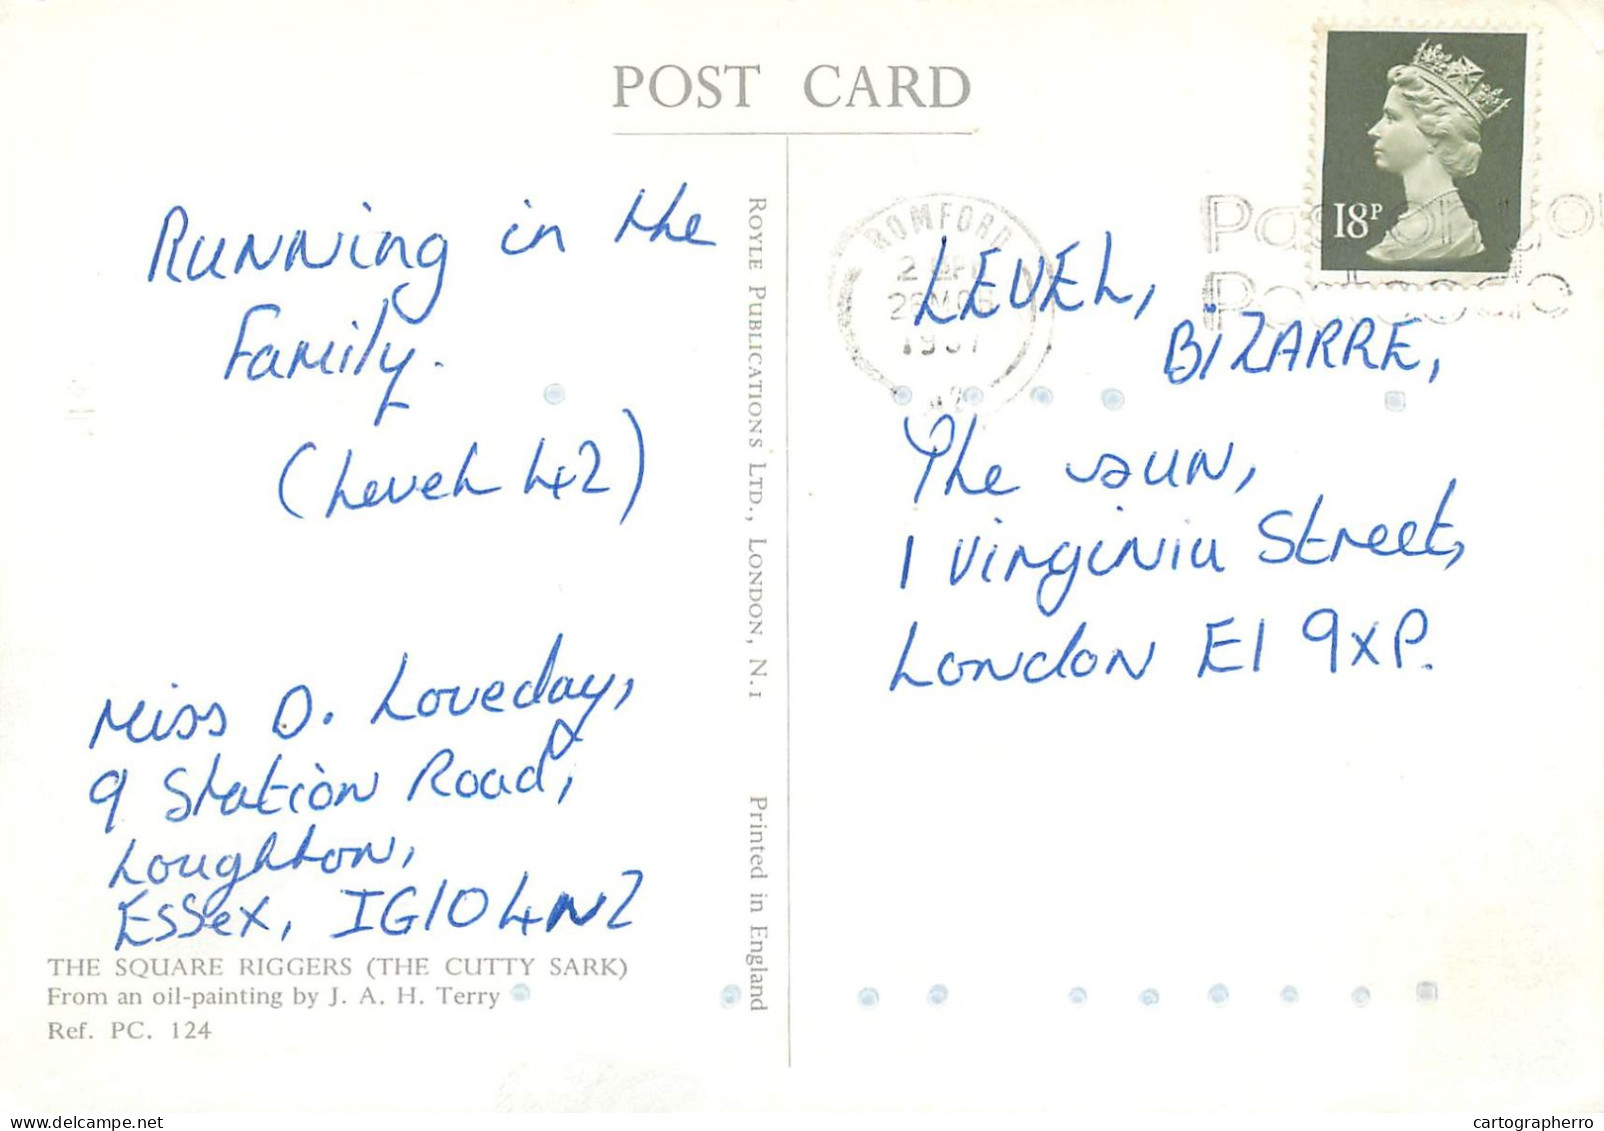 POST CARD
Running in the
Family.
(Level 42)
Miss D. Loveday,
9 Station Road,
Loughton,
Essex, IG10 4NZ
THE SQUARE RIGGERS (THE CUTTY SARK)
From an oil-painting by J. A. H. Terry
Ref. PC. 124
ROYLE PUBLICATIONS LTD., LONDON, N.1 Printed in England
18P
ROMFORD
1987
Pass on your
Postcode
LEVEL,
BiZARRE,
The sun,
1 Virginia Street,
London E1 9XP.
cartographerro